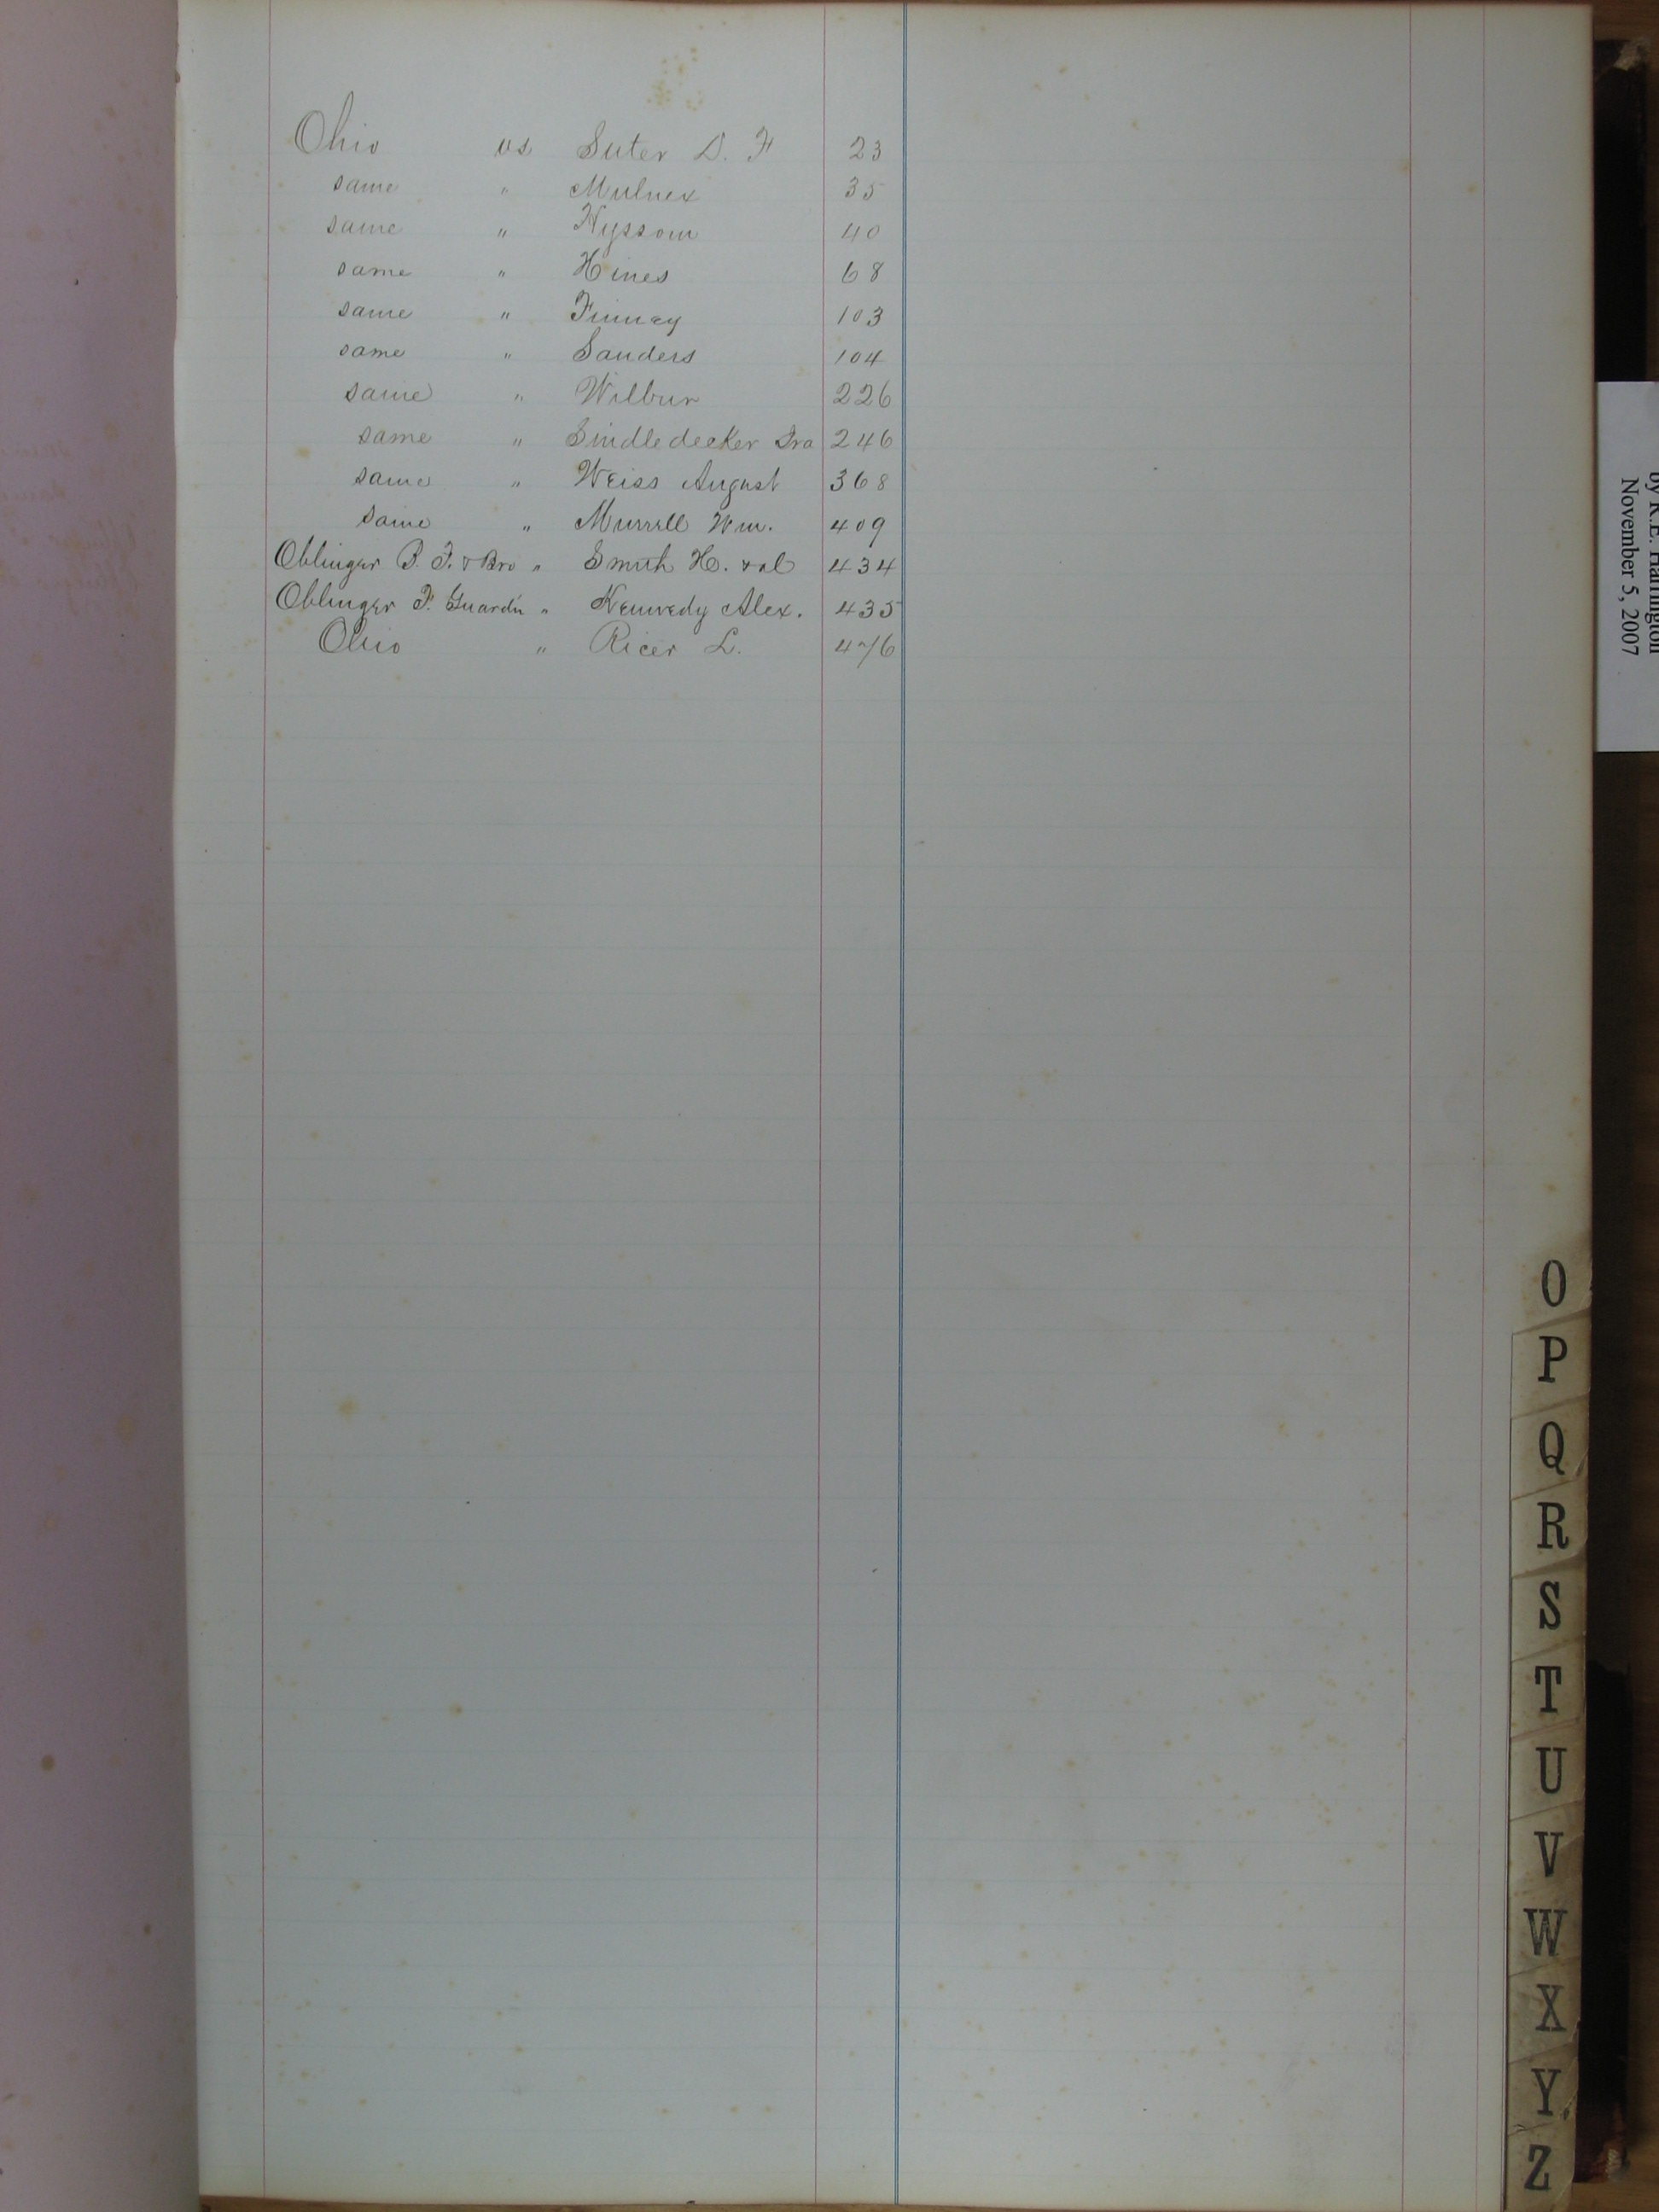 Ohio vs Suter D. F 23
same " Mulnex 35
same " Hyssom 40
same " Hines 68
same " Finney 103
same " Sanders 104
same " Wilbur 226
same " Sindledecker Ira 246
same " Weiss August 368
same " Murrell Wm. 409
Oblinger B. F. & Bro " Smith H. & al 434
Oblinger F. Guard'n " Kennedy Alex. 435
Ohio " Ricer L. 476
by R.E. Harrington
November 5, 2007
O
P
Q
R
S
T
U
V
W
X
Y
Z